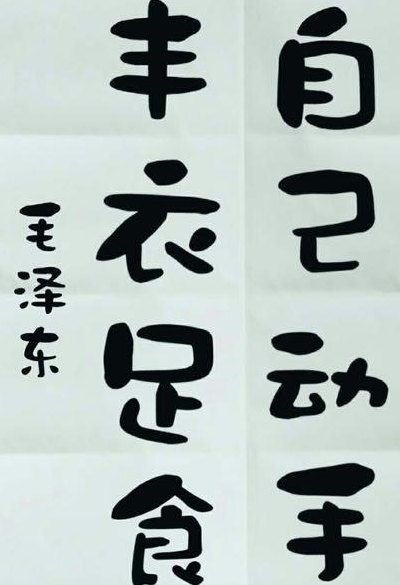 自己动手
丰衣足食
毛泽东